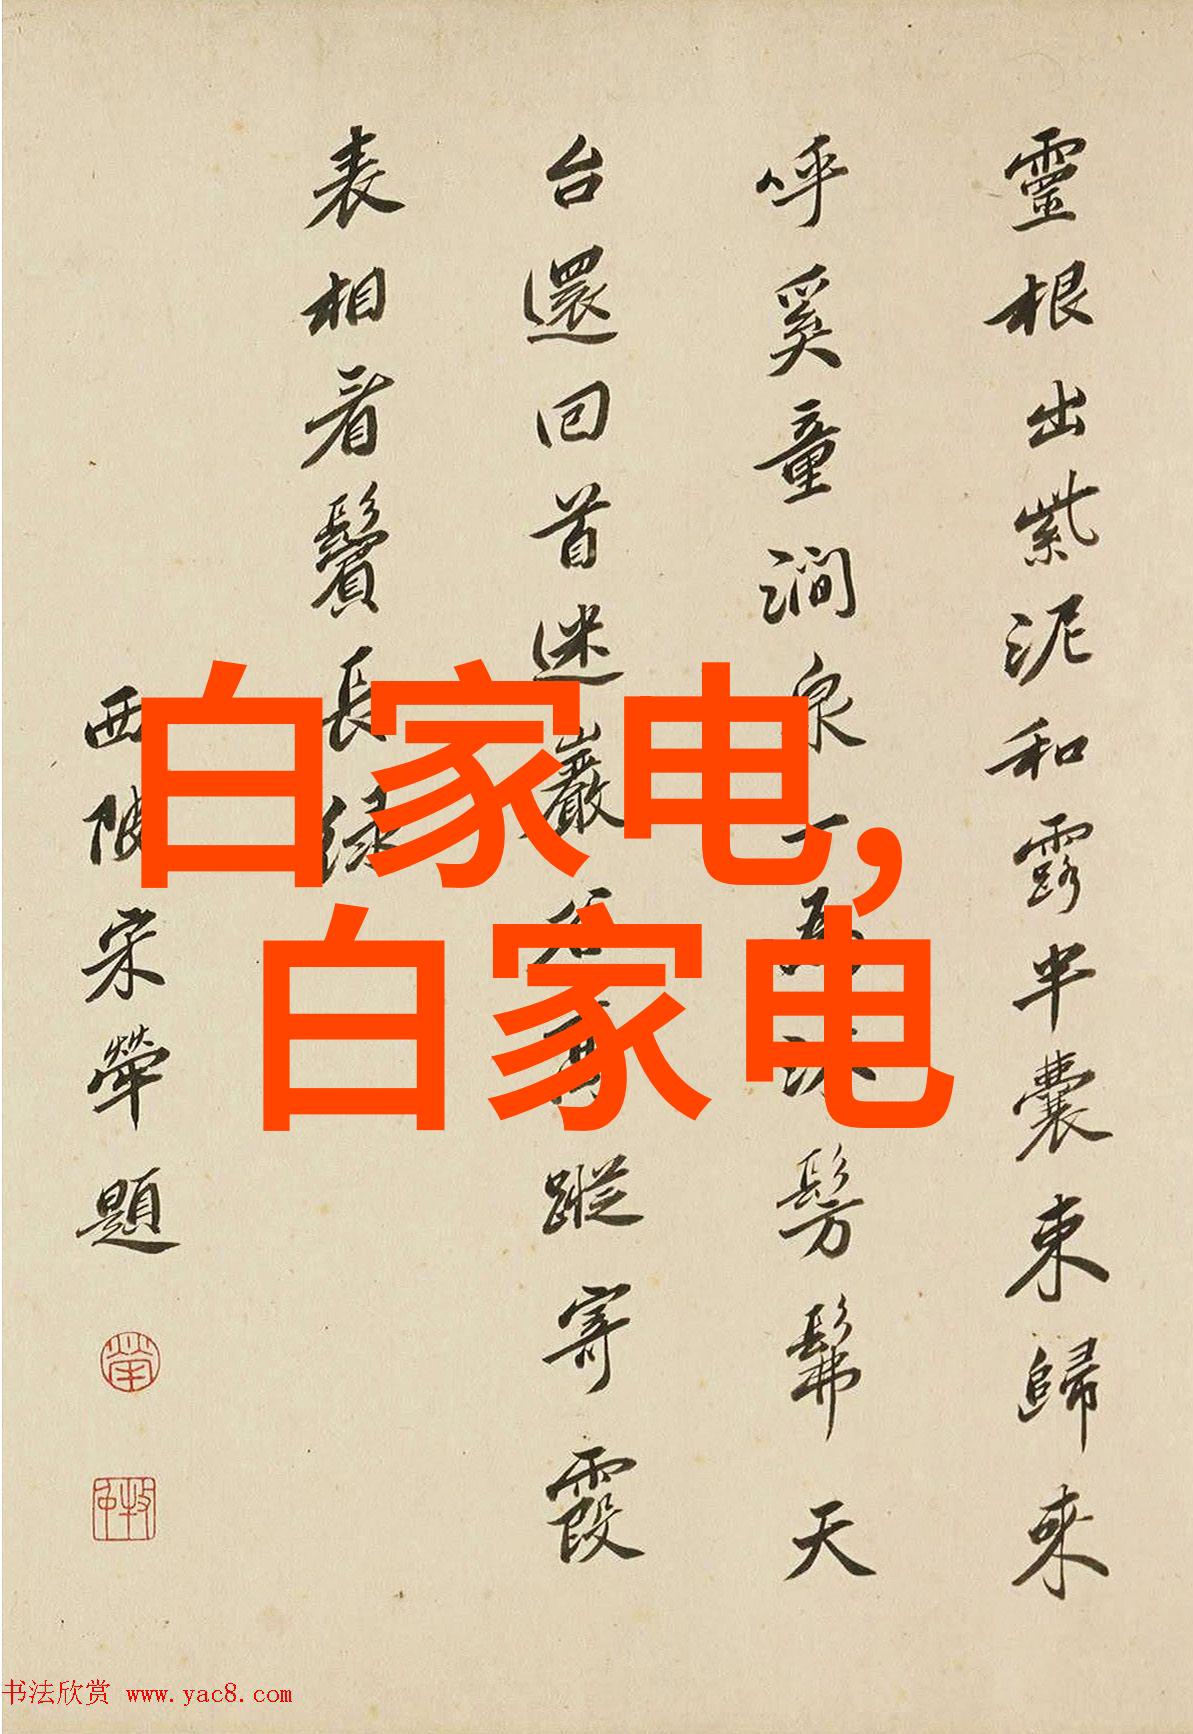 靈根出紫泥和露半囊束歸来
呼奚童澗泉一為沃髣髴天
台還回首迷巖谷蹤寄霞
表相看鬢長緑
西陂宋犖題
犖
牧仲
白家电,
白家电
书法欣赏 www.yac8.com